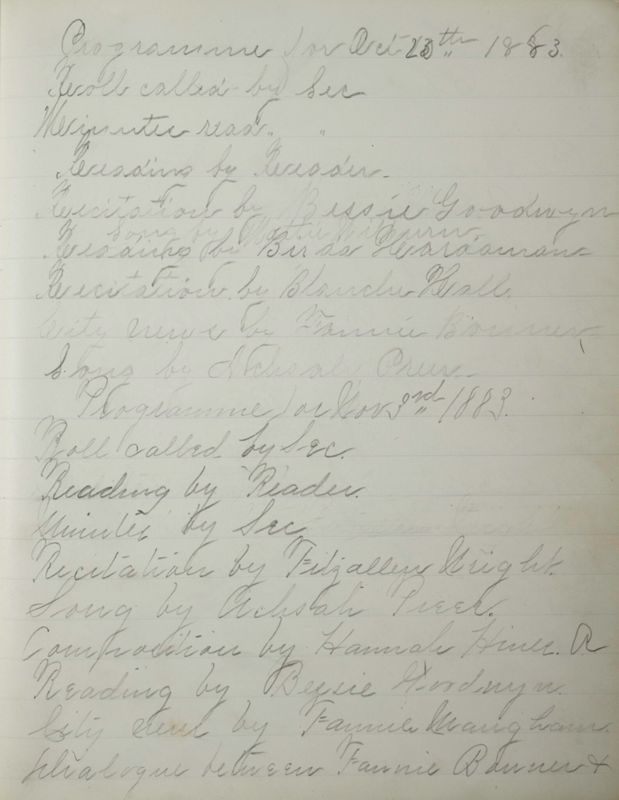 Programme for Oct 23th " 1883.
Roll called by Sec
Minutes read " "
Reading by Reader.
Recitation by Bessie Goodwyn
Song by
Reading by Birda Hardaman
Recitation by Blanche Hall.
City news by Fannie Bonner
Song by Achsah
Programme for Nov 3rd " 1883.
Roll called by Sec.
Reading by Reader.
Minutes by Sec
Recitation by Fitzallen Wright.
Song by Achsah
Composition by Hannah Hines. R
Reading by Bessie Goodwyn.
City news by Fannie Maugham.
Dialogue between Fannie Bonner +